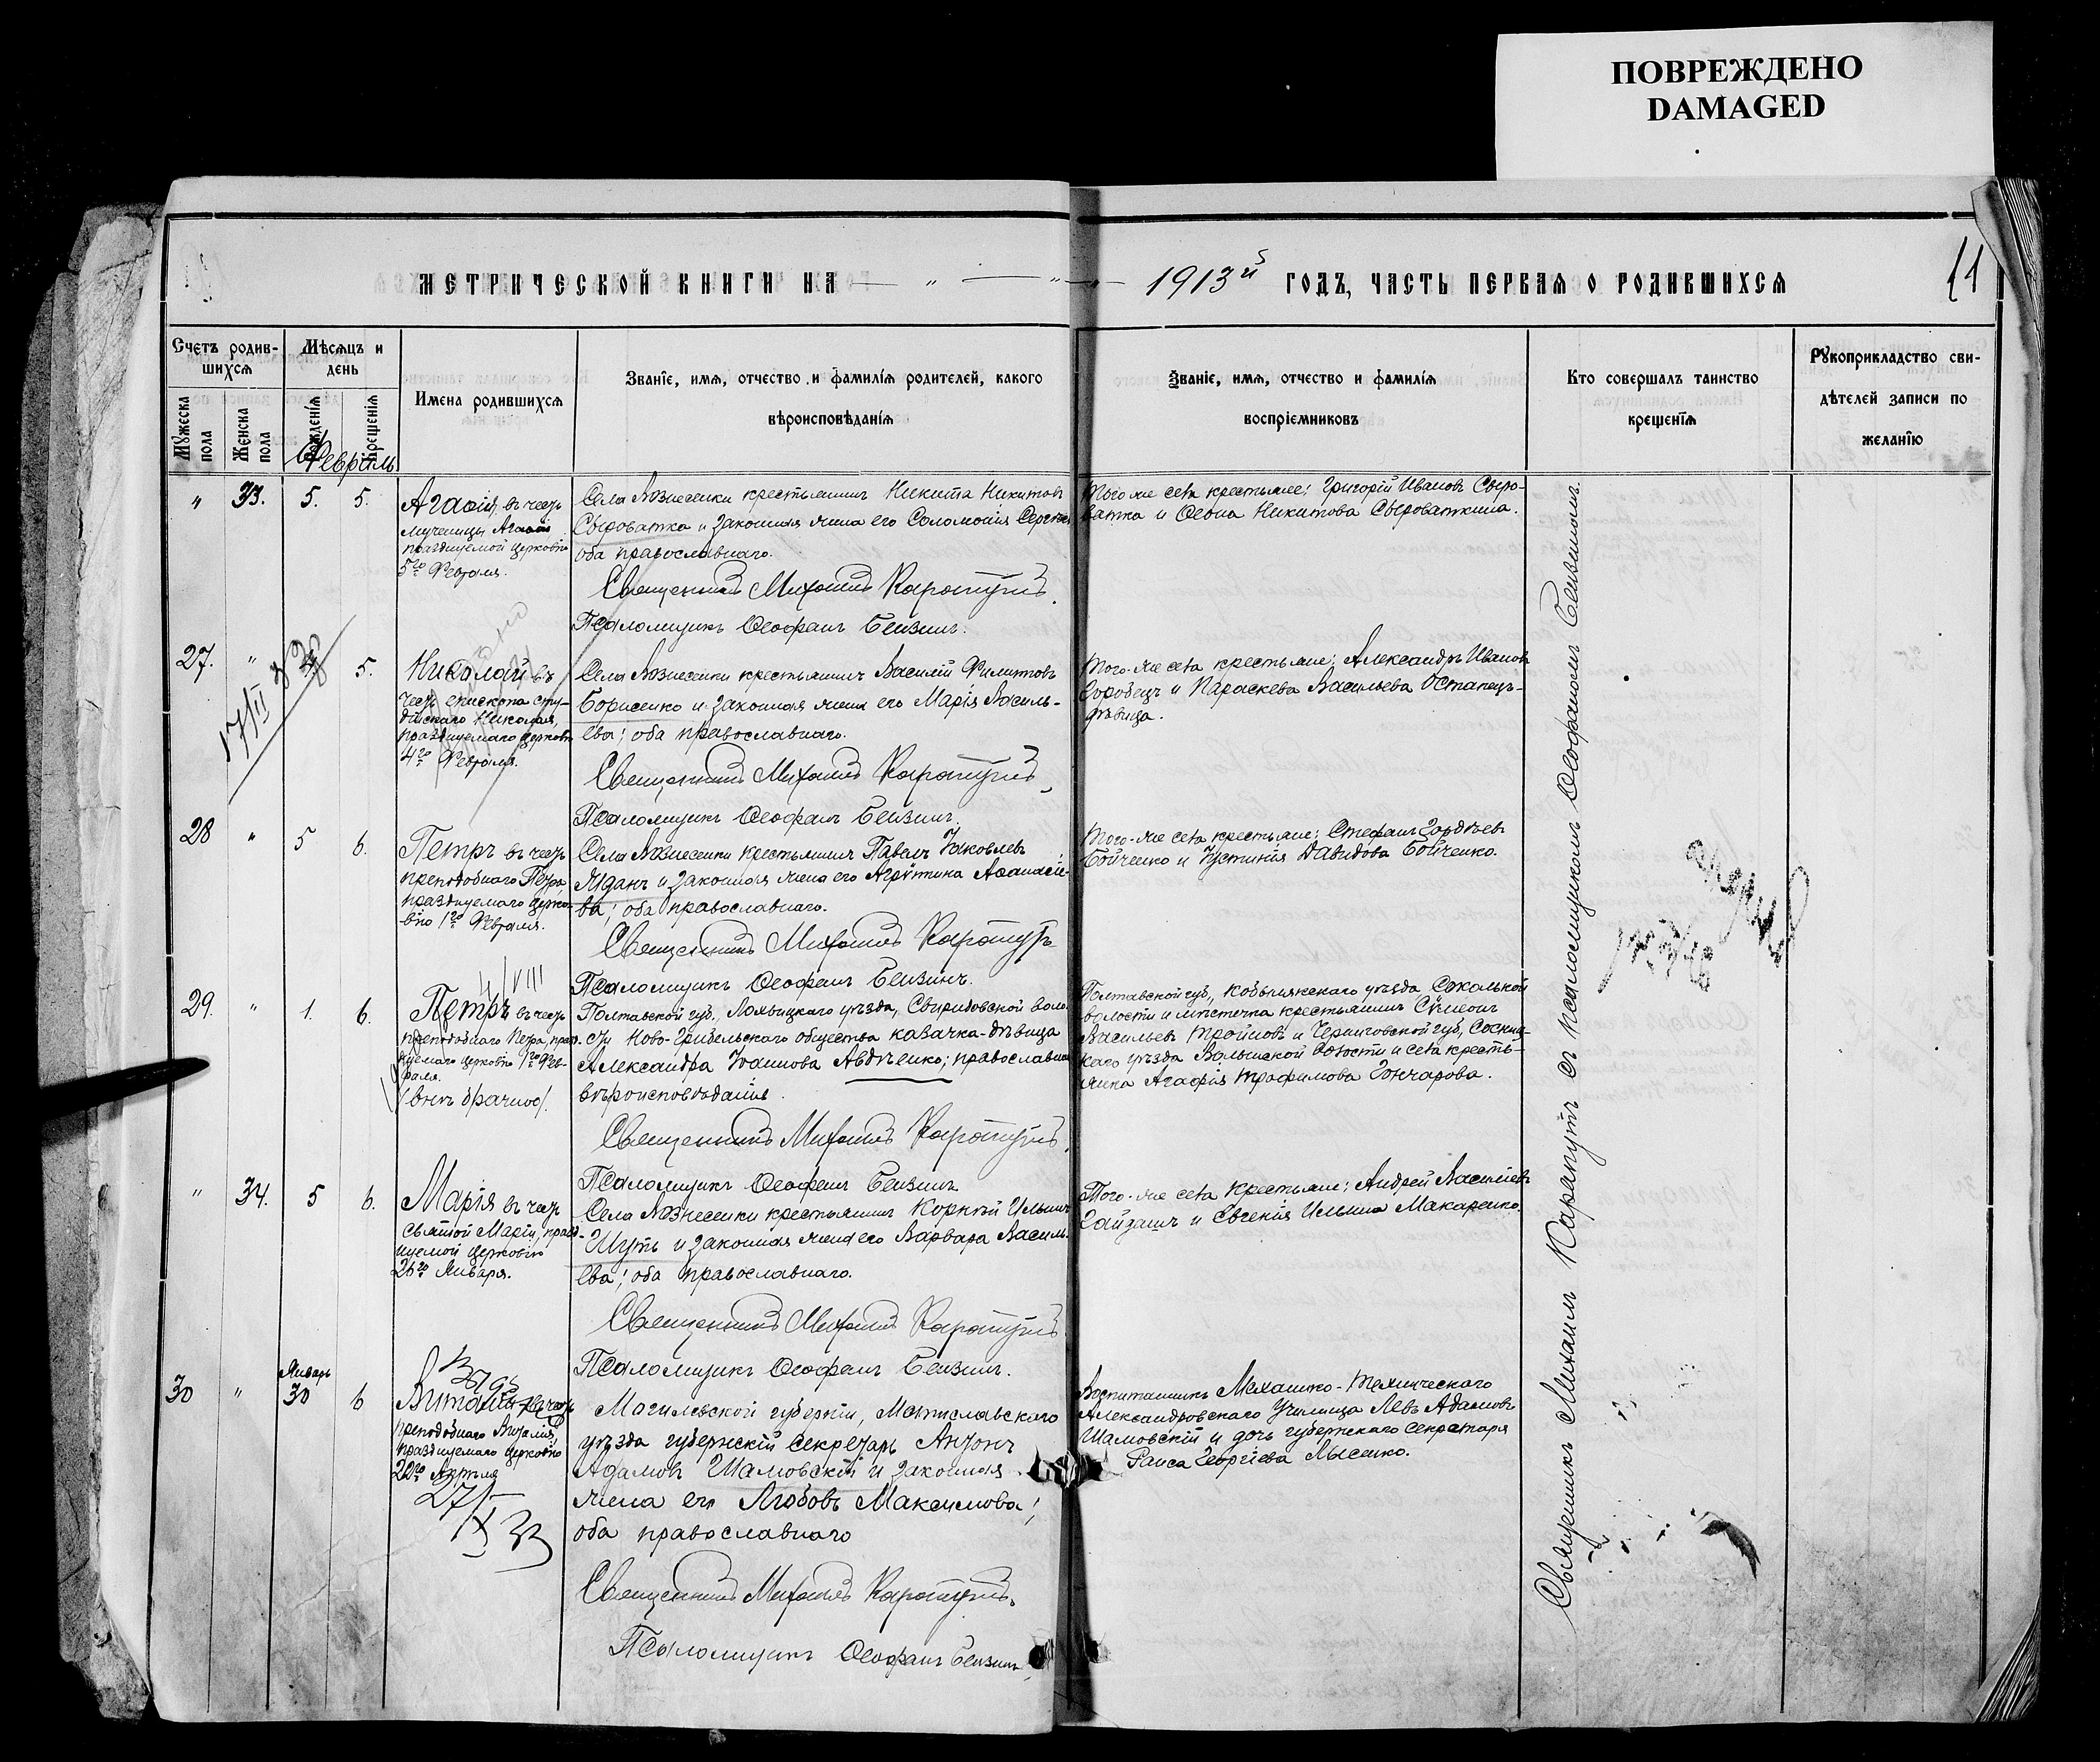 ПОВРЕЖДЕНО
DAMAGED
МЕТРИЧЕСКОЙ КНИГИ НА 1913й ГОДЪ, ЧАСТЬ ПЕРВАЯ О РОДИВШИХСЯ
Счетъ родив-
шихся
Мѣсяцъ и
день
Мужеска
пола
Женска
пола
Рожденія
Крещенія
Имена родившихся
Званіе, имя, отчество и фамилія родителей, какого
вѣроисповѣданія
Званіе, имя, отчество и фамилія
воспріемниковъ
Кто совершалъ таинство
крещенія
Рукоприкладство сви-
дѣтелей записи по
желанію
Февраль
" 33. 5. 5.
Агаѳія, въ честь
мученицы Агаѳіи
празднуемой церковію
5го Февраля.
Села Вознесенки крестьянинъ Никита Никитовъ
Сыроватка и законная жена его Соломонія Сергѣева
оба православнаго.
Священникъ Михаилъ Карапутъ.
Псаломщикъ Ѳеофанъ Бензинъ.
Того-же села крестьяне: Григорій Ивановъ Сыро-
ватка и Ѳеона Никитова Сыроваткина.
27. " 5.
17/II
Николай въ
честь епископа сту-
дійскаго Николая,
празднуемаго церковію
4го Февраля.
Села Вознесенки крестьянинъ Василій Филиповъ
Борисенко и законная жена его Марія Василь-
ева; оба православнаго.
Священникъ Михаилъ Карапутъ.
Псаломщикъ Ѳеофанъ Бензинъ.
Того-же села крестьяне: Александръ Ивановъ
Горобецъ и Параскева Васильева Остапецъ-
дѣвица.
28 " 5 6.
Петръ въ честь
преподобнаго Петра,
празднуемаго церко-
вію 1го Февраля.
Села Вознесенки крестьянинъ Павелъ Іаковлевъ
Жданъ и законная жена его Агрипина Аѳанасіе-
ва; оба православнаго.
Священникъ Михаилъ Карапутъ
Псаломщикъ Ѳеофанъ Бензинъ.
Того-же села крестьяне: Стефанъ Гордѣевъ
Бойченко и Іустинія Давидова Бойченко.
4/VIII
29. " 1. 6.
Петръ въ честь
преподобнаго Петра, празд-
нуемаго церковію 1го Фев-
раля.
(внѣ брачное).
Полтавской губ., Лохвицкаго уѣзда, Свиридовской воло-
сти Ново-Гребельскаго общества казачка-дѣвица
Александра Іоаннова Авдѣенко; православнаго
вѣроисповѣданія.
Священникъ Михаилъ Карапутъ.
Псаломщикъ Ѳеофанъ Бензинъ
Полтавской губ., Кобыляжскаго уѣзда Сокольской
волости и мѣстечка крестьянинъ Сѵмеонъ
Васильевъ Тройновъ и Черниговской губ., Сосниц-
каго уѣзда Волынской волости и села кресть-
янка Агафія Трофимова Гончарова.
" 34. 5 6.
Марія въ честь
святой Маріи, празд-
нуемой церковію
26го Января.
Села Вознесенки крестьянинъ Корнѣй Ильинъ
Шуть и законная жена его Варвара Василь-
ева; оба православнаго.
Священникъ Михаилъ Карапутъ.
Псаломщикъ Ѳеофанъ Бензинъ.
Того-же села крестьяне: Андрей Васильевъ
Гайдашъ и Евгенія Ильина Макаренко.
Январь
30 " 30 6
Виталій въ честь
преподобнаго Виталія,
празднуемаго церковію
22го Апрѣля
27/
IX 33
Могилевской губерніи, Мстиславскаго
уѣзда губернскій секретарь Антонъ
Адамовъ Шамовскій и законная
жена его Любовь Максимова;
оба православнаго
Священникъ Михаилъ Карапутъ.
Псаломщикъ Ѳеофанъ Бензинъ
Воспитанникъ Механико-Техническаго
Александровскаго Училища Левъ Адамовъ
Шамовскій и дочь губернскаго секретаря
Раиса Георгіева Лысенко.
Священникъ Михаилъ Карапутъ съ псаломщикомъ Ѳеофаномъ Бензинымъ.